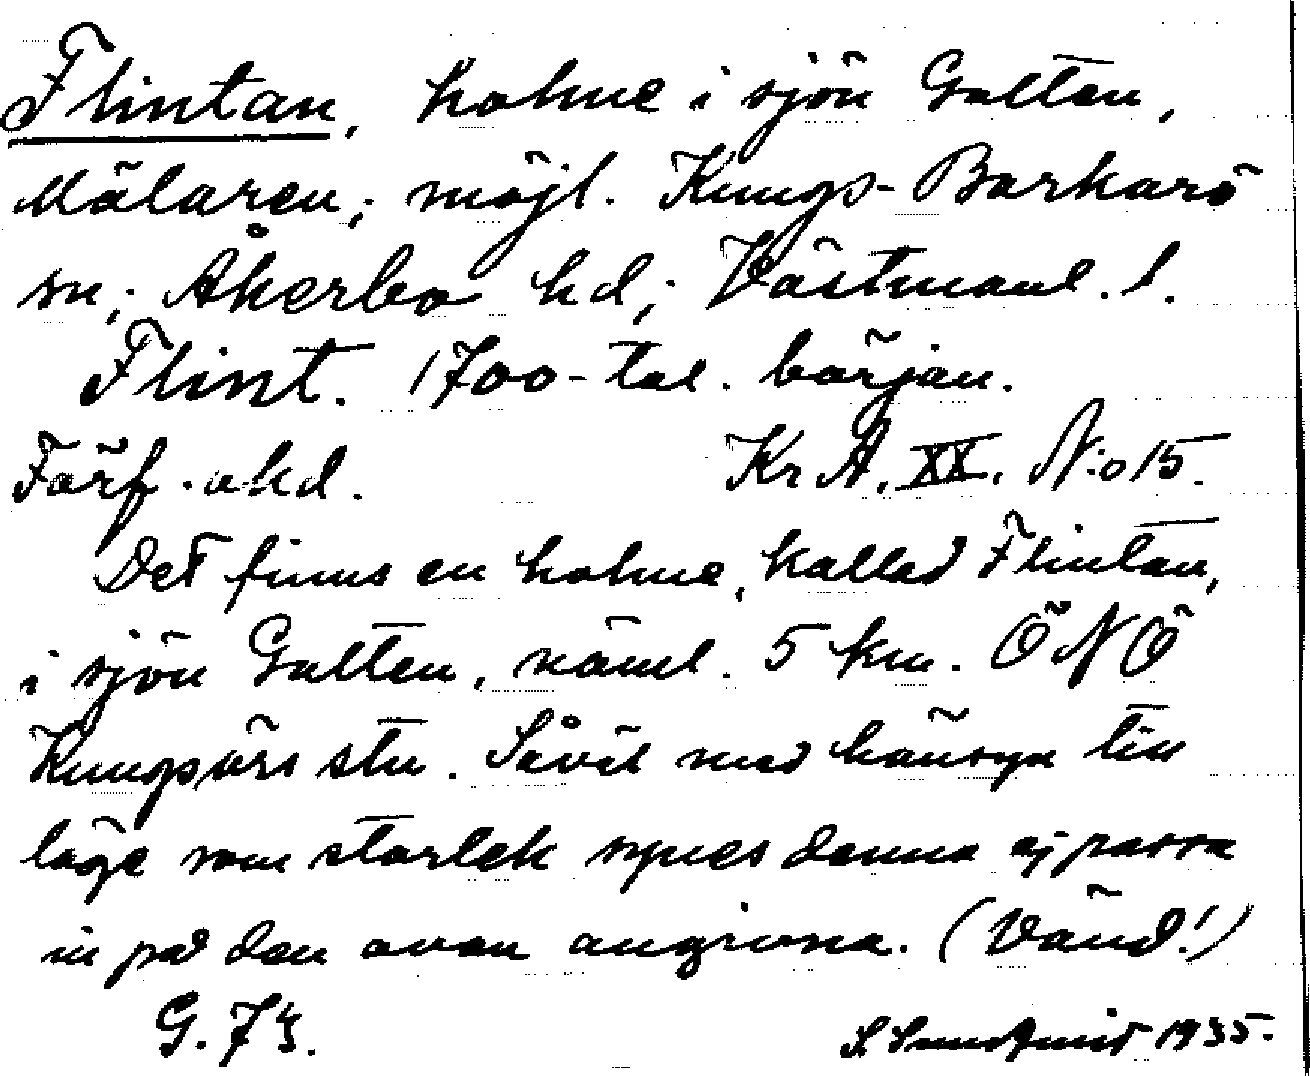 Flintan, holme i sjön Galten,
Mälaren; möjl. Kungs-Barkarö
sn; Åkerbo hd; Västmanl. l.
Flint. 1700-tal. början.
Förf. okd. Kr A. XX. N:o 15.
Det finns en holme, kallad Flintan,
i sjön Galten, näml. 5 km. ÖNÖ
Kungsörs stn. Såväl med hänsyn till
läge som storlek synes denna ej passa
in på den ovan angivna. (Vänd!)
G. 73. S. Sundqvist 1935.